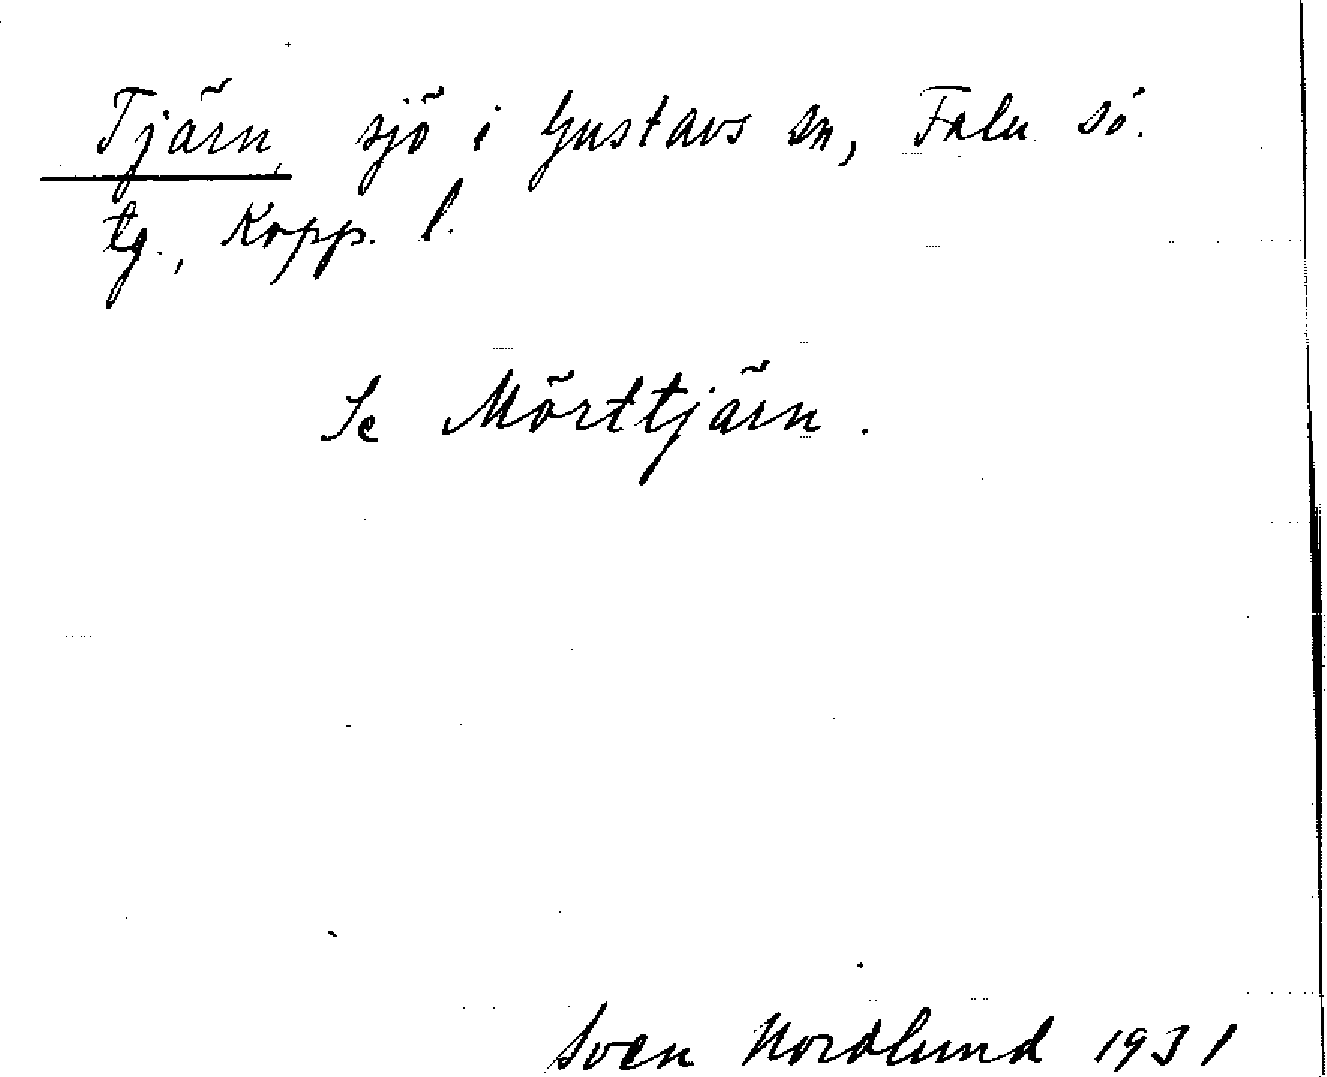 Tjärn, sjö i Gustavs sn, Falu sö.
tg., Kopp. l.
Se Mörttjärn.
Sven Nordlund 1931